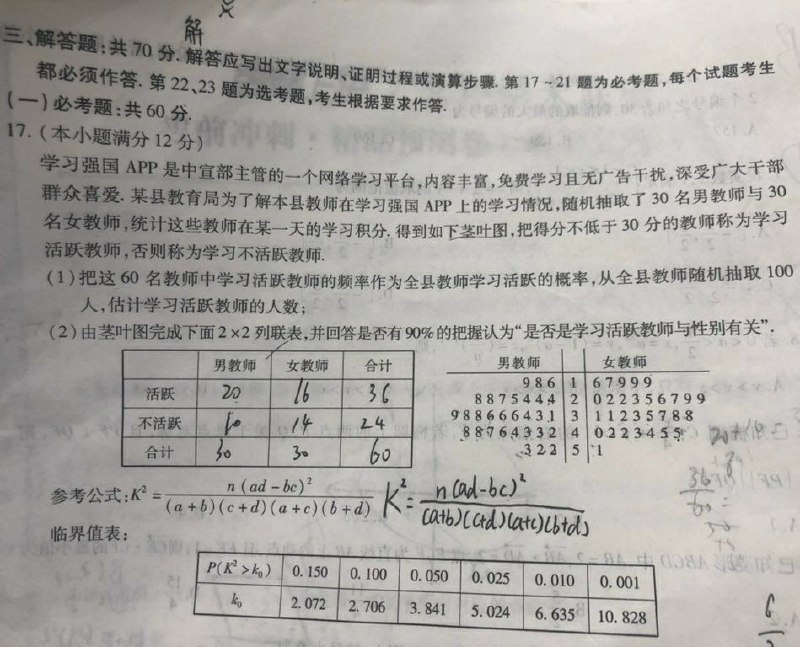 解
三、解答题:共70分.解答应写出文字说明、证明过程或演算步骤.第17~21题为必考题,每个试题考生
都必须作答.第22、23题为选考题,考生根据要求作答.
(一)必考题:共60分.
17.(本小题满分12分)
学习强国APP是中宣部主管的一个网络学习平台,内容丰富,免费学习且无广告干扰,深受广大干部
群众喜爱.某县教育局为了解本县教师在学习强国APP上的学习情况,随机抽取了30名男教师与30
名女教师,统计这些教师在某一天的学习积分.得到如下茎叶图,把得分不低于30分的教师称为学习
活跃教师,否则称为学习不活跃教师.
(1)把这60名教师中学习活跃教师的频率作为全县教师学习活跃的概率,从全县教师随机抽取100
人,估计学习活跃教师的人数;
(2)由茎叶图完成下面2×2列联表,并回答是否有90%的把握认为“是否是学习活跃教师与性别有关”.
男教师 女教师 合计
活跃 20 16 36
不活跃 10 14 24
合计 30 30 60
男教师 女教师
9 8 6 1 6 7 9 9 9
8 8 7 5 4 4 4 2 0 2 2 3 5 6 7 9 9
9 8 8 6 6 6 4 3 1 3 1 1 2 3 5 7 8 8
8 8 7 6 4 3 3 2 4 0 2 2 3 4 5 5
3 2 2 5 1
参考公式:K²=n(ad-bc)²/(a+b)(c+d)(a+c)(b+d) K²=n(ad-bc)²/(a+b)(c+d)(a+c)(b+d)
临界值表:
P(K²>k₀) 0.150 0.100 0.050 0.025 0.010 0.001
k₀ 2.072 2.706 3.841 5.024 6.635 10.828
36/60=